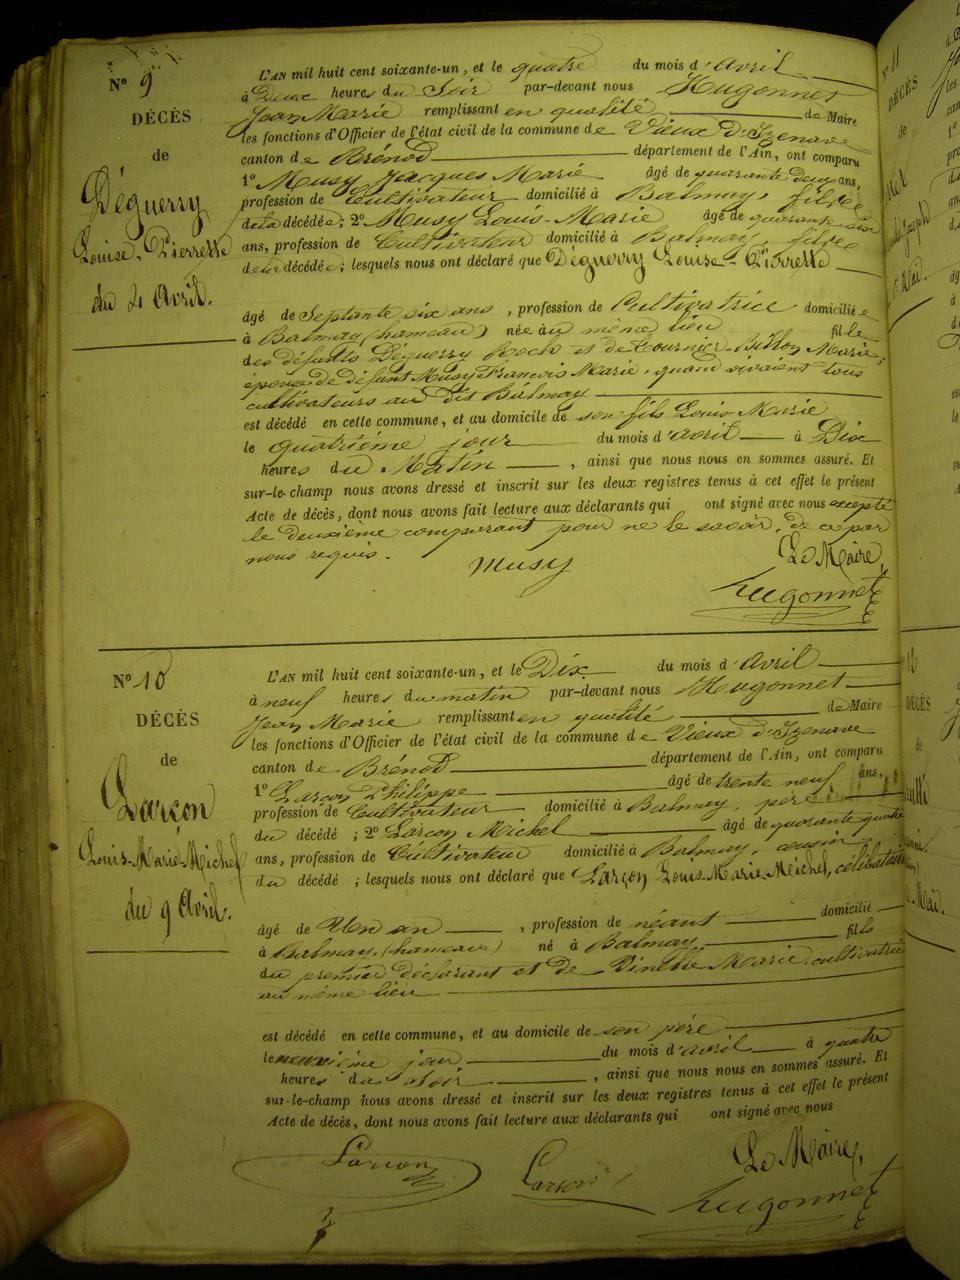 N° 9
DÉCÈS
de
Déguerry
Louise-Pierrette
du 4 Avril.
L'AN mil huit cent soixante-un, et le quatre du mois d'Avril
à Deux heures du Soir par-devant nous Hugonnet
Jean Marie remplissant en qualité de Maire
les fonctions d'Officier de l'état civil de la commune de Vieux d'Izenave
canton de Brénod département de l'Ain, ont comparu
1° Musy Jacques Marie âgé de quarante deux ans,
profession de Cultivateur domicilié à Balmay, fils de
de la décédée; 2° Musy Louis-Marie âgé de quarante
ans, profession de Cultivateur domicilié à Balmay, fils de
de la décédée; lesquels nous ont déclaré que Déguerry Louise-Pierrette
âgé de Septante six ans, profession de Cultivatrice domiciliée
à Balmay (hameau) née au même lieu fille
des défunts Déguerry Roch et de Tournier-Billon Marie,
épouse de défunt Musy François Marie, quand vivaient tous
cultivateurs au dit Balmay
est décédé en cette commune, et au domicile de son fils Louis Marie
le quatrième jour du mois d'avril à Dix
heures du Matin, ainsi que nous nous en sommes assuré. Et
sur-le-champ nous avons dressé et inscrit sur les deux registres tenus à cet effet le présent
Acte de décès, dont nous avons fait lecture aux déclarants qui ont signé avec nous excepté
le deuxième comparant pour ne le savoir, de ce par
nous requis.
Musy
Le Maire,
Hugonnet
N° 10
DÉCÈS
de
Larçon
Louis-Marie-Michel
du 9 Avril.
L'AN mil huit cent soixante-un, et le Dix du mois d'Avril
à neuf heures du matin par-devant nous Hugonnet
Jean Marie remplissant en qualité de Maire
les fonctions d'Officier de l'état civil de la commune de Vieux d'Izenave
canton de Brénod département de l'Ain, ont comparu
1° Larçon Philippe âgé de trente neuf ans,
profession de Cultivateur domicilié à Balmay, père
du décédé; 2° Larçon Michel âgé de quarante quatre
ans, profession de Cultivateur domicilié à Balmay, cousin
du décédé; lesquels nous ont déclaré que Larçon Louis-Marie-Michel, célibataire
âgé de Un an, profession de néant domicilié
à Balmay, (hameau) né à Balmay, fils
du premier déclarant et de Vinette Marie cultivatrice
au même lieu
est décédé en cette commune, et au domicile de son père
le neuvième jour du mois d'avril à quatre
heures du soir, ainsi que nous nous en sommes assuré. Et
sur-le-champ nous avons dressé et inscrit sur les deux registres tenus à cet effet le présent
Acte de décès, dont nous avons fait lecture aux déclarants qui ont signé avec nous
Larçon Larçon
Le Maire,
Hugonnet